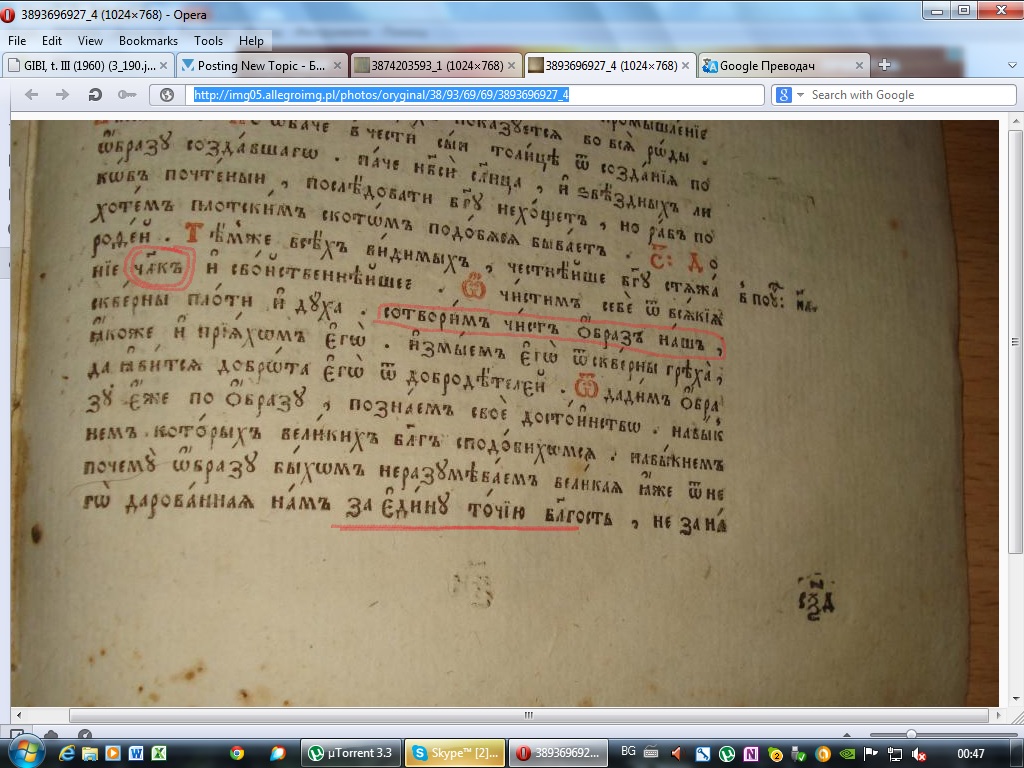 3893696927_4 (1024×768) - Opera
File Edit View Bookmarks Tools Help
GIBI, t. III (1960) (3_190.j... Posting New Topic - Б... 3874203593_1 (1024×768) 3893696927_4 (1024×768) Google Преводач
http://img05.allegroimg.pl/photos/oryginal/38/93/69/69/3893696927_4 Search with Google
ѡ҃браꙁꙋ соꙁда́вшагѡ . па́че нб҃си сл҃нца , и҆ ѕвѣ́ꙁдныхъ ли
кѡ́въ почте́ныи , послѣ́довати бг҃ꙋ нехо́щетъ , но ра́въ по
хоте́мъ пло́тскимъ ското́мъ подо́бѧсѧ быва́етъ .
роде́й . Тѣ́мже всѣ́хъ ви́димыхъ , честнѣ́йше бг҃ꙋ стѧжа́
нїе чл҃къ и҆ сво́йственнѣйшее . Ѿ чи́стимъ себѐ ѿ всѧ́кїѧ
скве́рны пло́ти и҆ дꙋ́ха . сотвори́мъ чи́стъ ѻ҆́браꙁъ на́шъ ,
ꙗ҆́коже и҆ прїѧ́хомъ є҆гѡ̀ . и҆ꙁмы́емъ є҆гѡ̀ ѿ скве́рны грѣха̀ ,
да ꙗ҆ви́тсѧ добро́та є҆гѡ̀ ѿ добродѣ́телей . Ѿ дади́мъ ѻ҆́бра
ꙁꙋ є҆́же по ѻ҆́браꙁꙋ , поꙁна́емъ своѐ досто́инство . навы́к
немъ кото́рыхъ вели́кихъ бл҃гъ сподо́бихѡмсѧ . навы́кнемъ
почемꙋ̀ ѡ҆́браꙁꙋ бы́хѡмъ нераꙁꙋмѣва́емъ вели́каѧ ꙗ҆́же ѿ не
гѡ̀ дарова́ннаѧ на́мъ ꙁа є҆ди́нꙋ то́чїю бл҃гость , не ꙁа на́
BG 00:47
µTorrent 3.3 Skype™ [2]... 389369692...